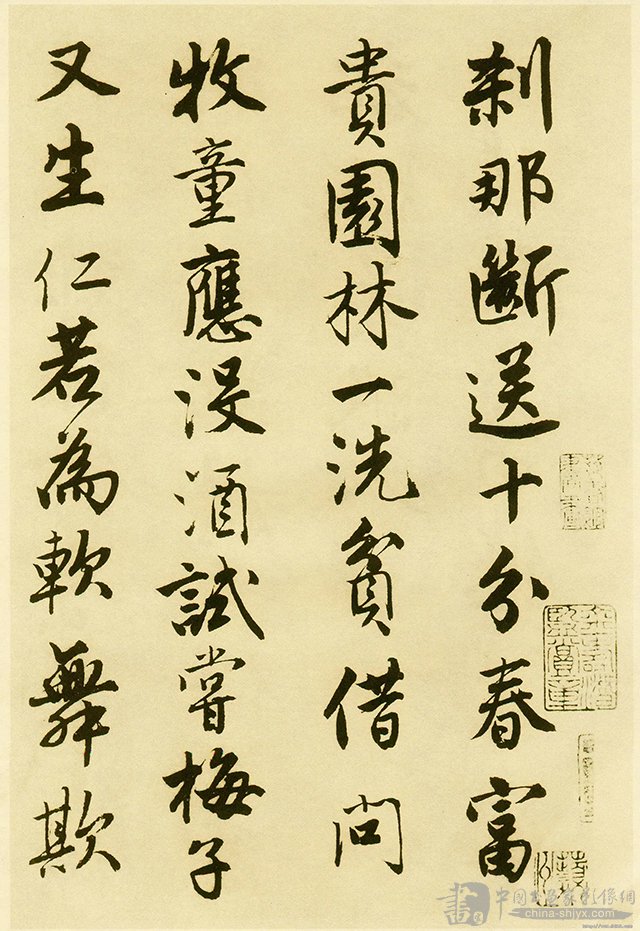 刹那斷送十分春富
貴園林一洗貧借問
牧童應没酒試嘗梅子
又生仁若為軟舞欺
書 中國書画家影像網
china-shjyx.com